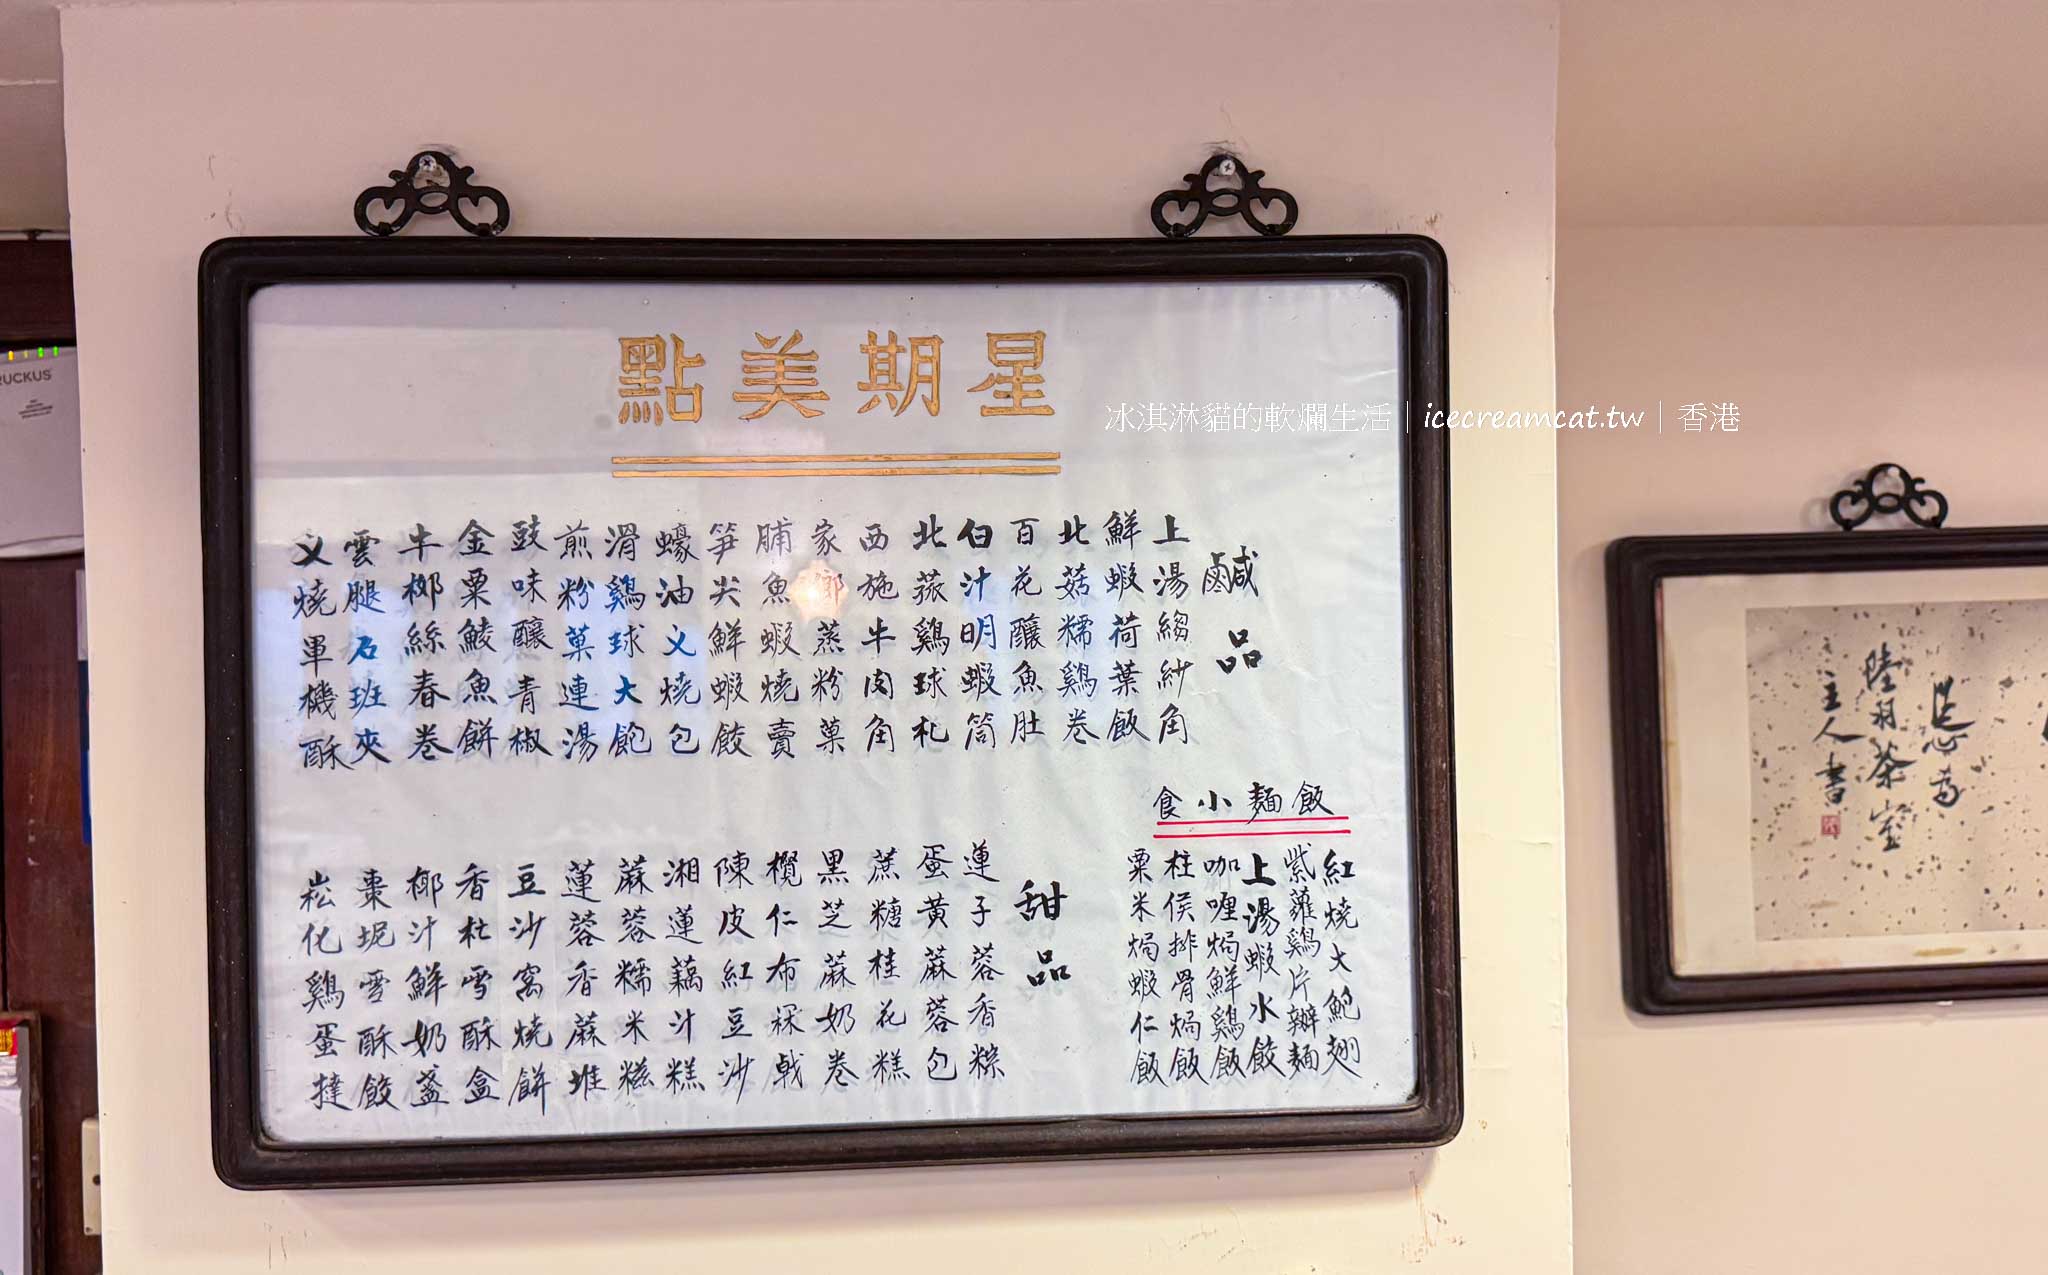 星期美點
鹹品
上湯縐紗角
鮮蝦荷葉飯
北菇糯鷄卷
百花釀魚肚
白汁明蝦筒
北菰鷄球札
西施牛肉角
家鄉蒸粉菓
脯魚蝦燒賣
笋尖鮮蝦餃
蠔油义燒包
滑鷄球大飽
煎粉菓連湯
豉味釀青椒
金粟鯪魚餅
牛柳絲春卷
雲腿石班夾
义燒軍機酥
飯麵小食
紅燒大鮑翅
紫蘿鷄片辦麵
上湯蝦水餃
咖喱焗鮮鷄飯
柱侯排骨焗飯
粟米焗蝦仁飯
甜品
蓮子蓉香粽
蛋黃蔴蓉包
蔗糖桂花糕
黑芝蔴奶卷
欖仁布冧戟
陳皮紅豆沙
湘蓮藕汁糕
蔴蓉糯米糍
蓮蓉香蔴堆
豆沙窩燒餅
香杜雪酥盒
椰汁鮮奶盞
棗坭雪酥餃
崧化鷄蛋撻
冰淇淋貓的軟爛生活｜icecreamcat.tw｜香港
陸羽茶室
主人書
RUCKUS